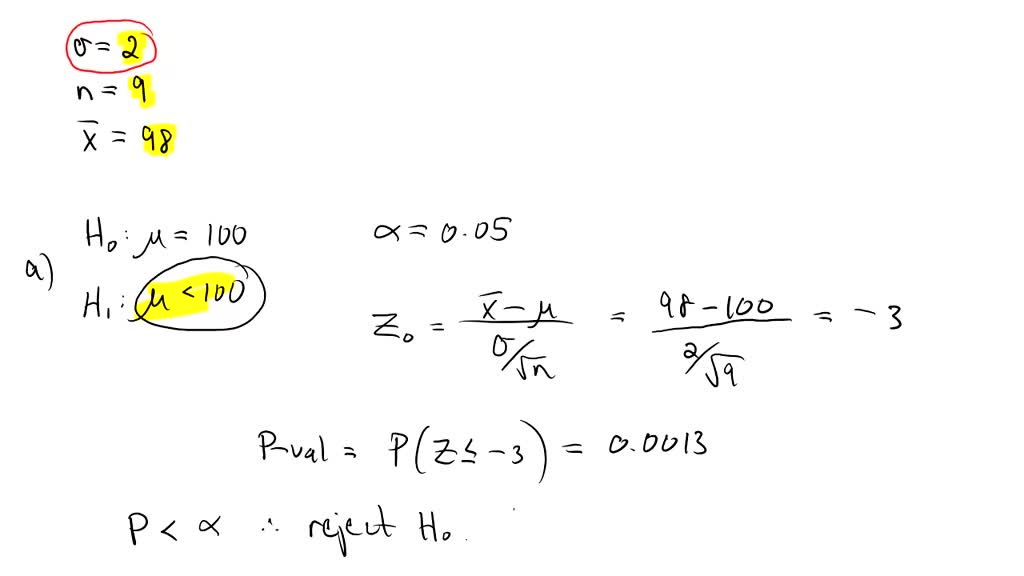 σ = 2
n = 9
x̄ = 98
a)
H₀: μ = 100
α = 0.05
H₁: μ < 100
Z₀ = (x̄ − μ)/(σ/√n) = (98 − 100)/(2/√9) = −3
P-val = P(Z ≤ −3) = 0.0013
P < α ∴ reject H₀.